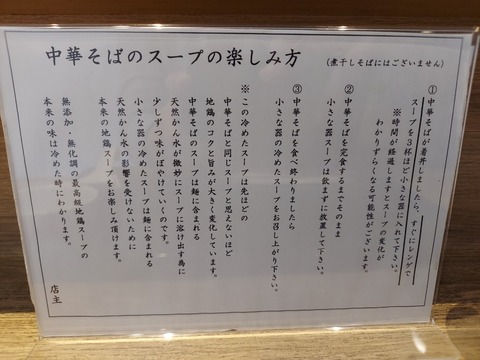 中華そばのスープの楽しみ方
(煮干しそばにはございません)
① 中華そばが着丼しましたら、すぐにレンゲで
スープを3杯ほど小さな器に入れて下さい。
※時間が経過しますとスープの変化が
わかりずらくなる可能性がございます。
② 中華そばを完食するまでそのまま
小さな器スープは飲まずに放置して下さい。
③ 中華そばを食べ終わりましたら
小さな器の冷めたスープをお召し上がり下さい。
※この冷めたスープは先ほどの
中華そばと同じスープと思えないほど
地鶏のコクと旨みが大きく変化しています。
中華そばのスープは麺に含まれる
天然かん水が微妙にスープに溶け出す為に
少しずつ味がぼやけていくのです。
小さな器の冷めたスープは麺に含まれる
天然かん水の影響を受けないために
本来の地鶏スープをお楽しみ頂けます。
無添加・無化調の最高級地鶏スープの
本来の味は冷めた時にわかります。
店主